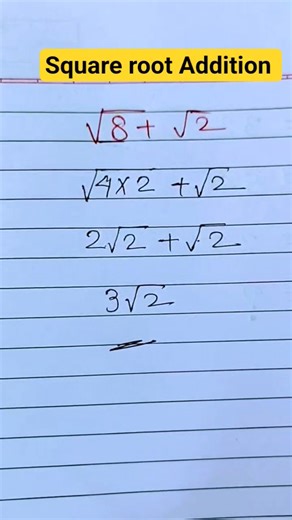 Square root Addition
√8 + √2
√4×2 + √2
2√2 + √2
3√2